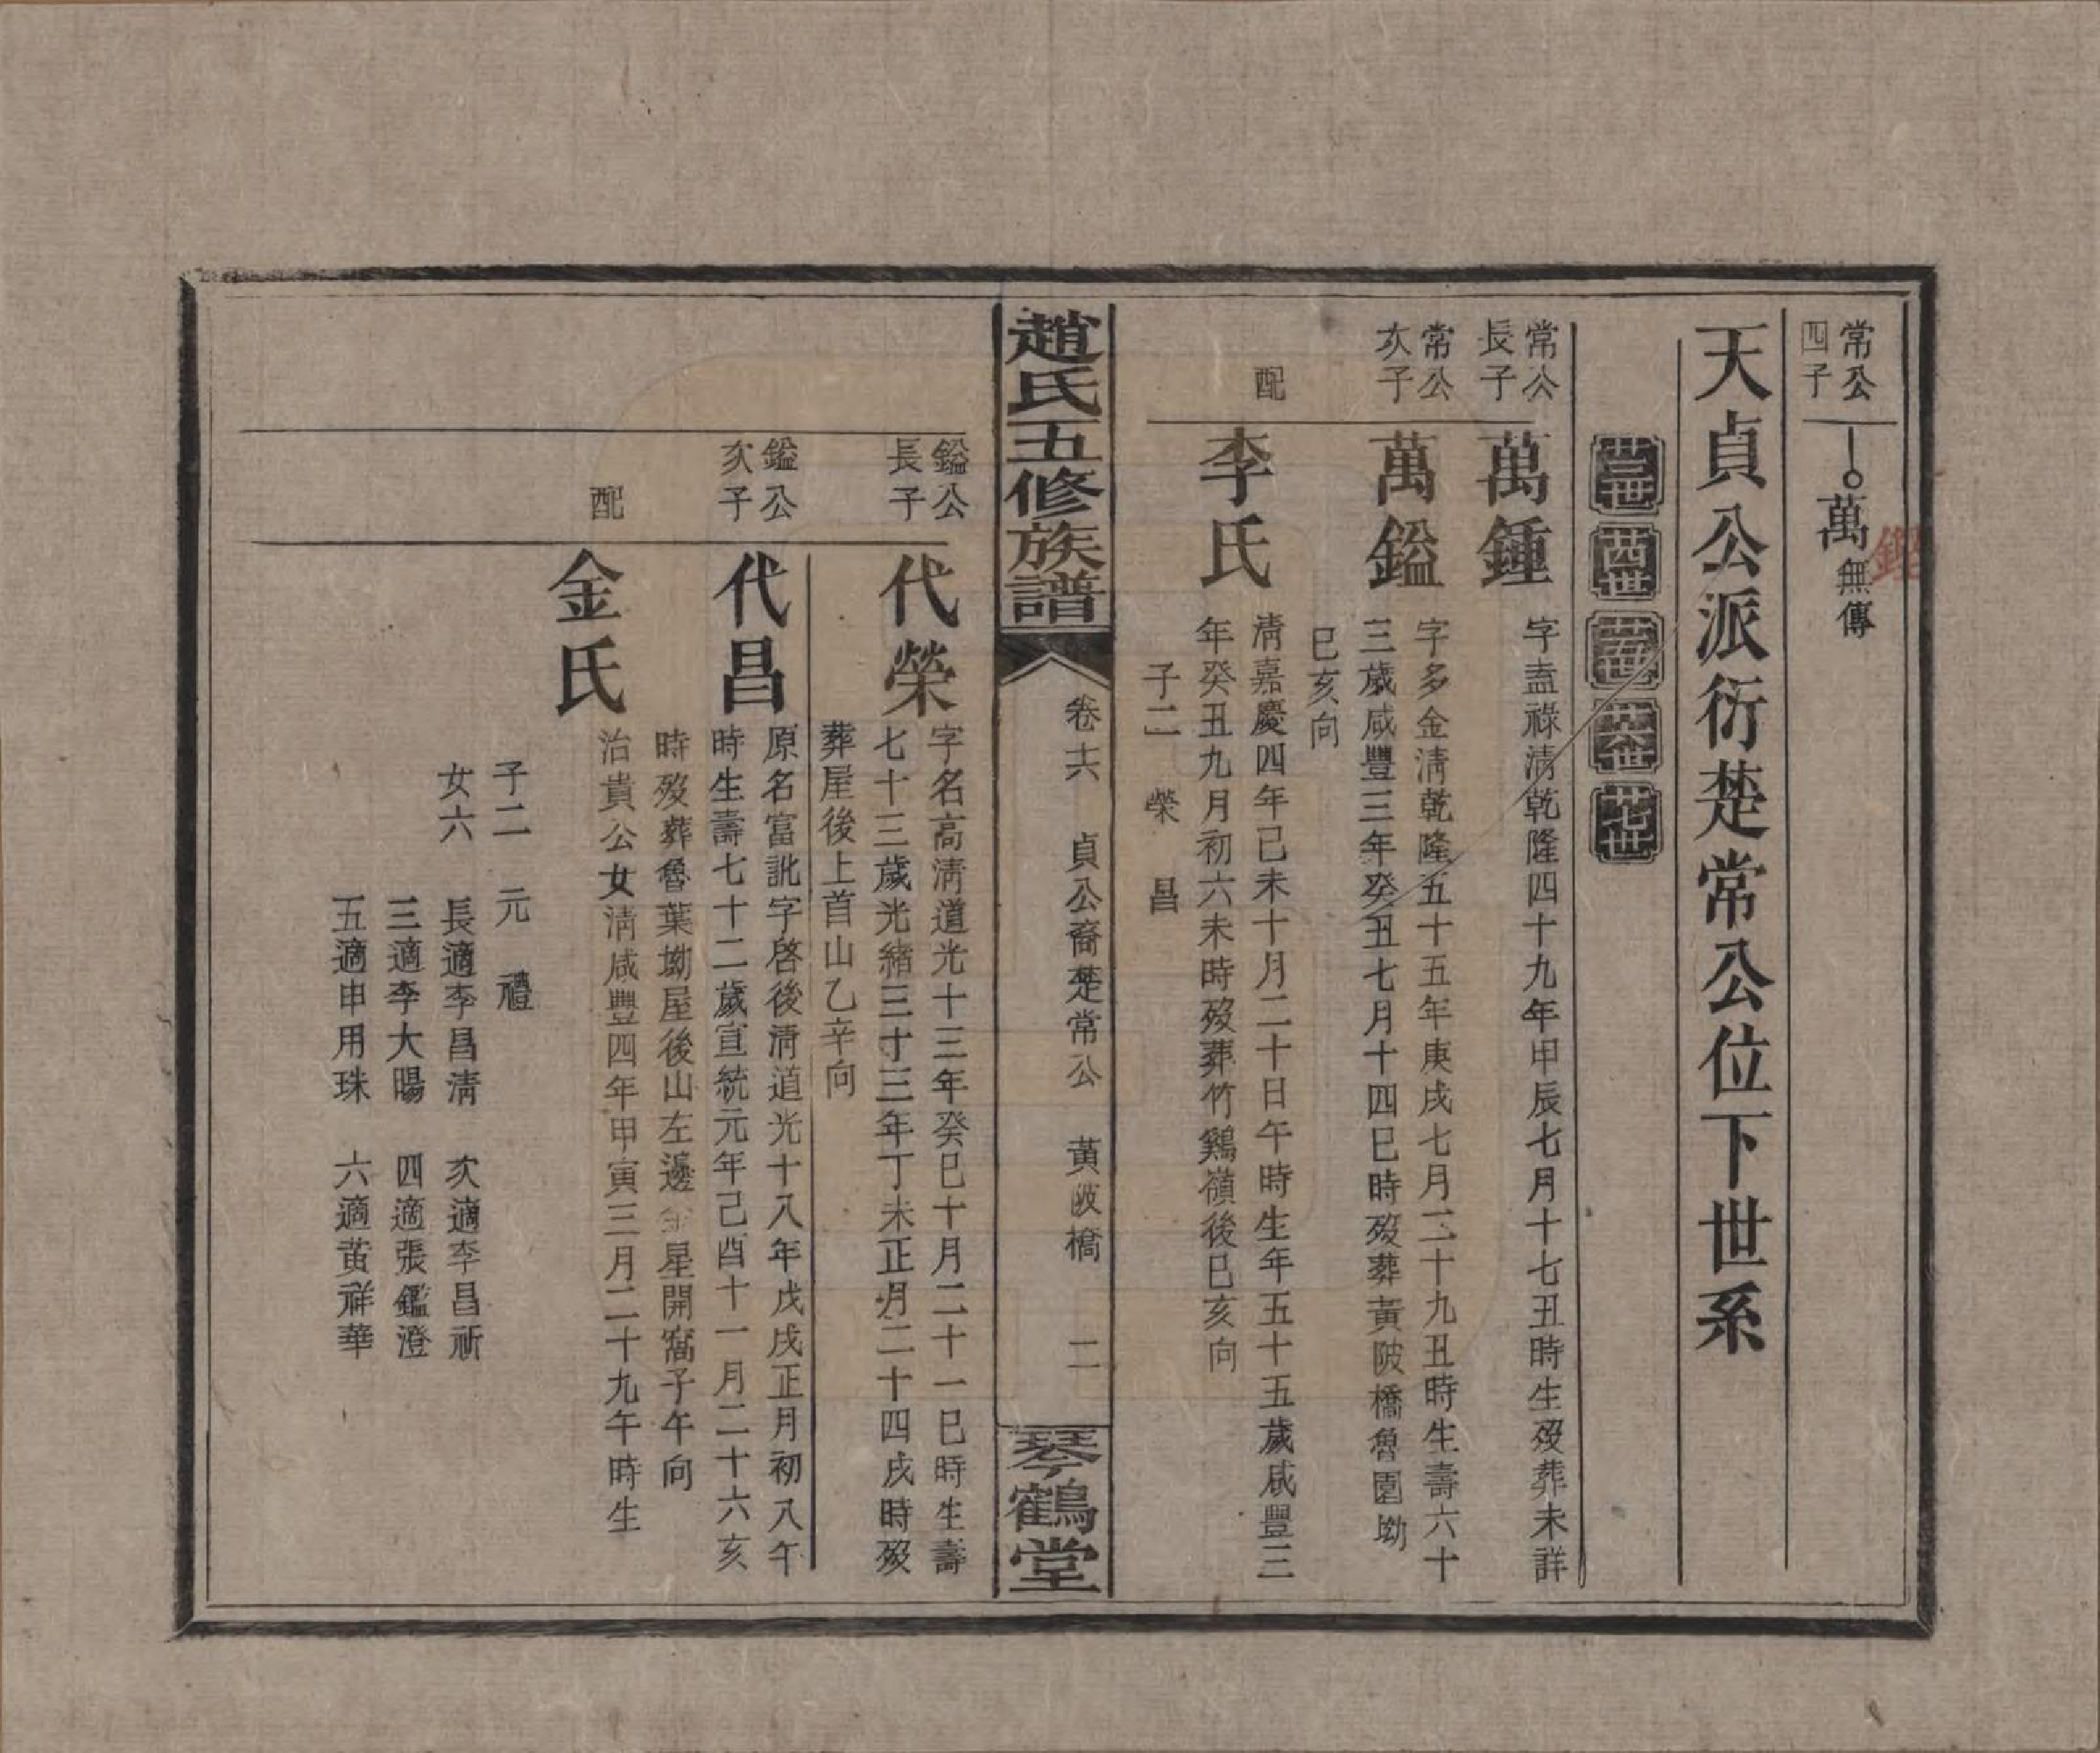 常公
四子
萬
鏗
無傳
天貞公派衍楚常公位下世系
卅三世
卅四世
卅五世
卅六世
卅七世
常公
長子
萬鍾
字壵祿淸乾隆四十九年甲辰七月十七丑時生歿葬未詳
常公
次子
萬鎰
字多金淸乾隆五十五年庚戌七月二十九丑時生壽六十
三歲咸豐三年癸丑七月十四巳時歿葬黃陂橋魯園坳
巳亥向
配
李氏
淸嘉慶四年己未十月二十日午時生年五十五歲咸豐三
年癸丑九月初六未時歿葬竹鷄嶺後巳亥向
子二 榮 昌
趙氏五修族譜
卷六 貞公裔楚常公 黃陂橋 二
琴鶴堂
鎰公
長子
代榮
字名高淸道光十三年癸巳十月二十一巳時生壽
七十三歲光緒三十三年丁未正月二十四戌時歿
葬屋後上首山乙辛向
鎰公
次子
代昌
原名富訛字啓後淸道光十八年戊戌正月初八午
時生壽七十二歲宣統元年己酉十一月二十六亥
時歿葬魯葉坳屋後山左邊金星開窩子午向
配
金氏
治貴公女淸咸豐四年甲寅三月二十九午時生
子二 元 禮
女六 長適李昌淸 次適李昌祈
三適李大暘 四適張鑑澄
五適申用珠 六適黃祥華